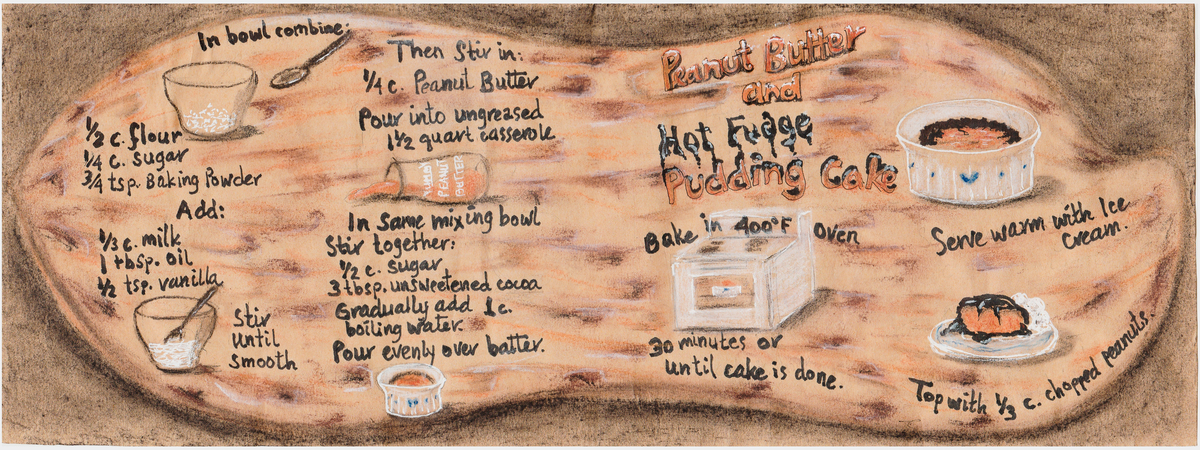 In bowl combine:
1/2 c. flour
1/4 c. sugar
3/4 tsp. Baking Powder
Add:
1/3 c. milk
1 tbsp. oil
1/2 tsp. vanilla
Stir
until
smooth
Then Stir in:
1/4 c. Peanut Butter
Pour into ungreased
1 1/2 quart casserole
PEANUT
BUTTER
In same mixing bowl
Stir together:
1/2 c. sugar
3 tbsp. unsweetened cocoa
Gradually add 1c.
boiling water.
Pour evenly over batter.
Peanut Butter
and
Hot Fudge
Pudding Cake
Bake in 400°F Oven
30 minutes or
until cake is done.
Serve warm with Ice
Cream.
Top with 1/3 c. chopped peanuts.